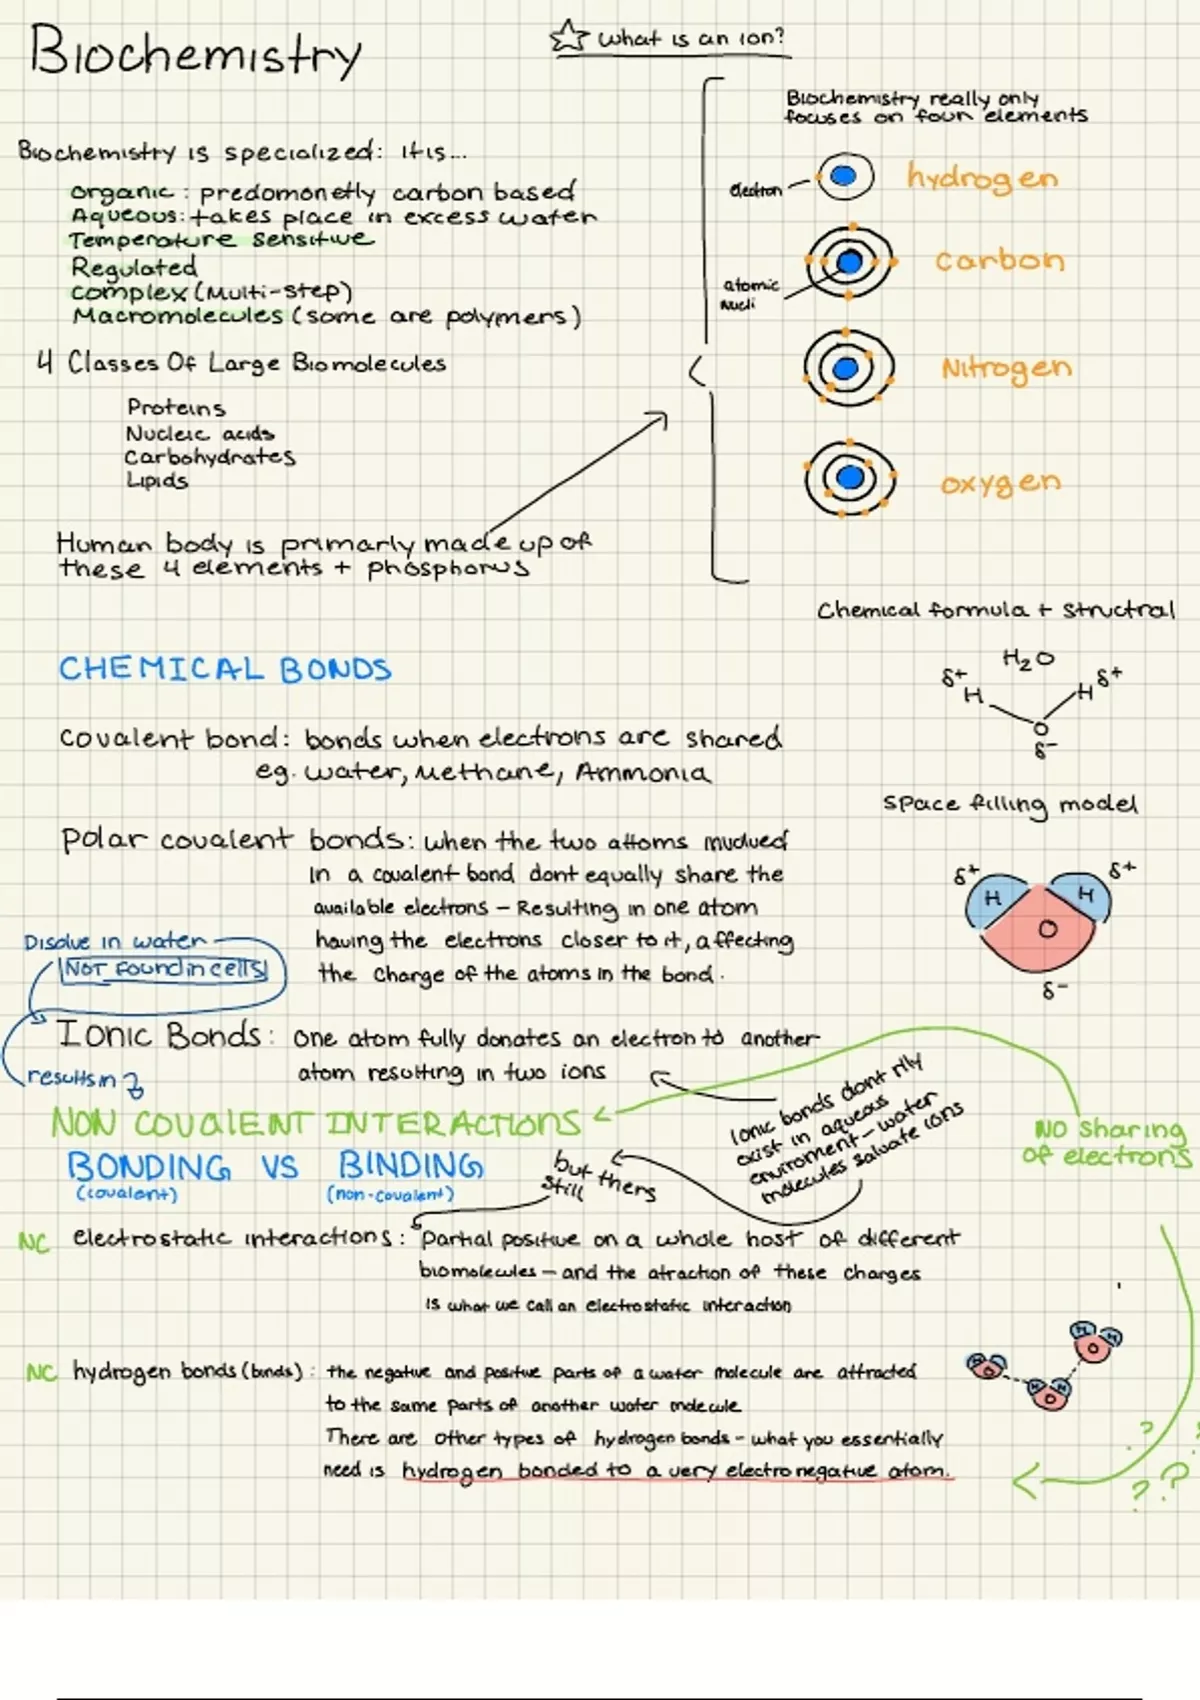 Biochemistry
☆ What is an ion?
Biochemistry is specialized: it is...
organic: predomonetly carbon based
Aqueous: takes place in excess water
Temperature Sensitive
Regulated
complex (Multi-step)
Macromolecules (some are polymers)
4 Classes Of Large Biomolecules
Proteins
Nucleic acids
Carbohydrates
Lipids
Human body is primarly made up of
these 4 elements + phosphorus
Biochemistry really only
focuses on four elements
electron
hydrogen
atomic
nucli
carbon
Nitrogen
oxygen
Chemical formula + structral
H₂O
δ+
H
H
δ+
O
δ-
CHEMICAL BONDS
covalent bond: bonds when electrons are shared
eg. water, Methane, Ammonia
Space filling model
δ+
H
H
δ+
O
δ-
polar covalent bonds: when the two attoms
in a covalent bond dont equally share the
available electrons - Resulting in one atom
having the electrons closer to it, affecting
the charge of the atoms in the bond.
Disolve in water
NOT found in cells
Ionic Bonds: one atom fully donates an electron to another
atom resulting in two ions
results in
Ionic bonds dont rlly
exist in aqueous
enviroment - water
molecules saluate ions
NON COVALENT INTERACTIONS
NO sharing
of electrons
BONDING VS BINDING
(covalent) (non-covalent)
but thers
still
NC electrostatic interactions: Partial positive on a whole host of different
biomolecules - and the atraction of these charges
is what we call an electrostatic interaction
NC hydrogen bonds (binds): the negative and positive parts of a water molecule are attracted
to the same parts of another water molecule
There are other types of hydrogen bonds - what you essentially
need is hydrogen bonded to a very electronegative atom.
H H
O
H
O
H H
O
? ?
? ?